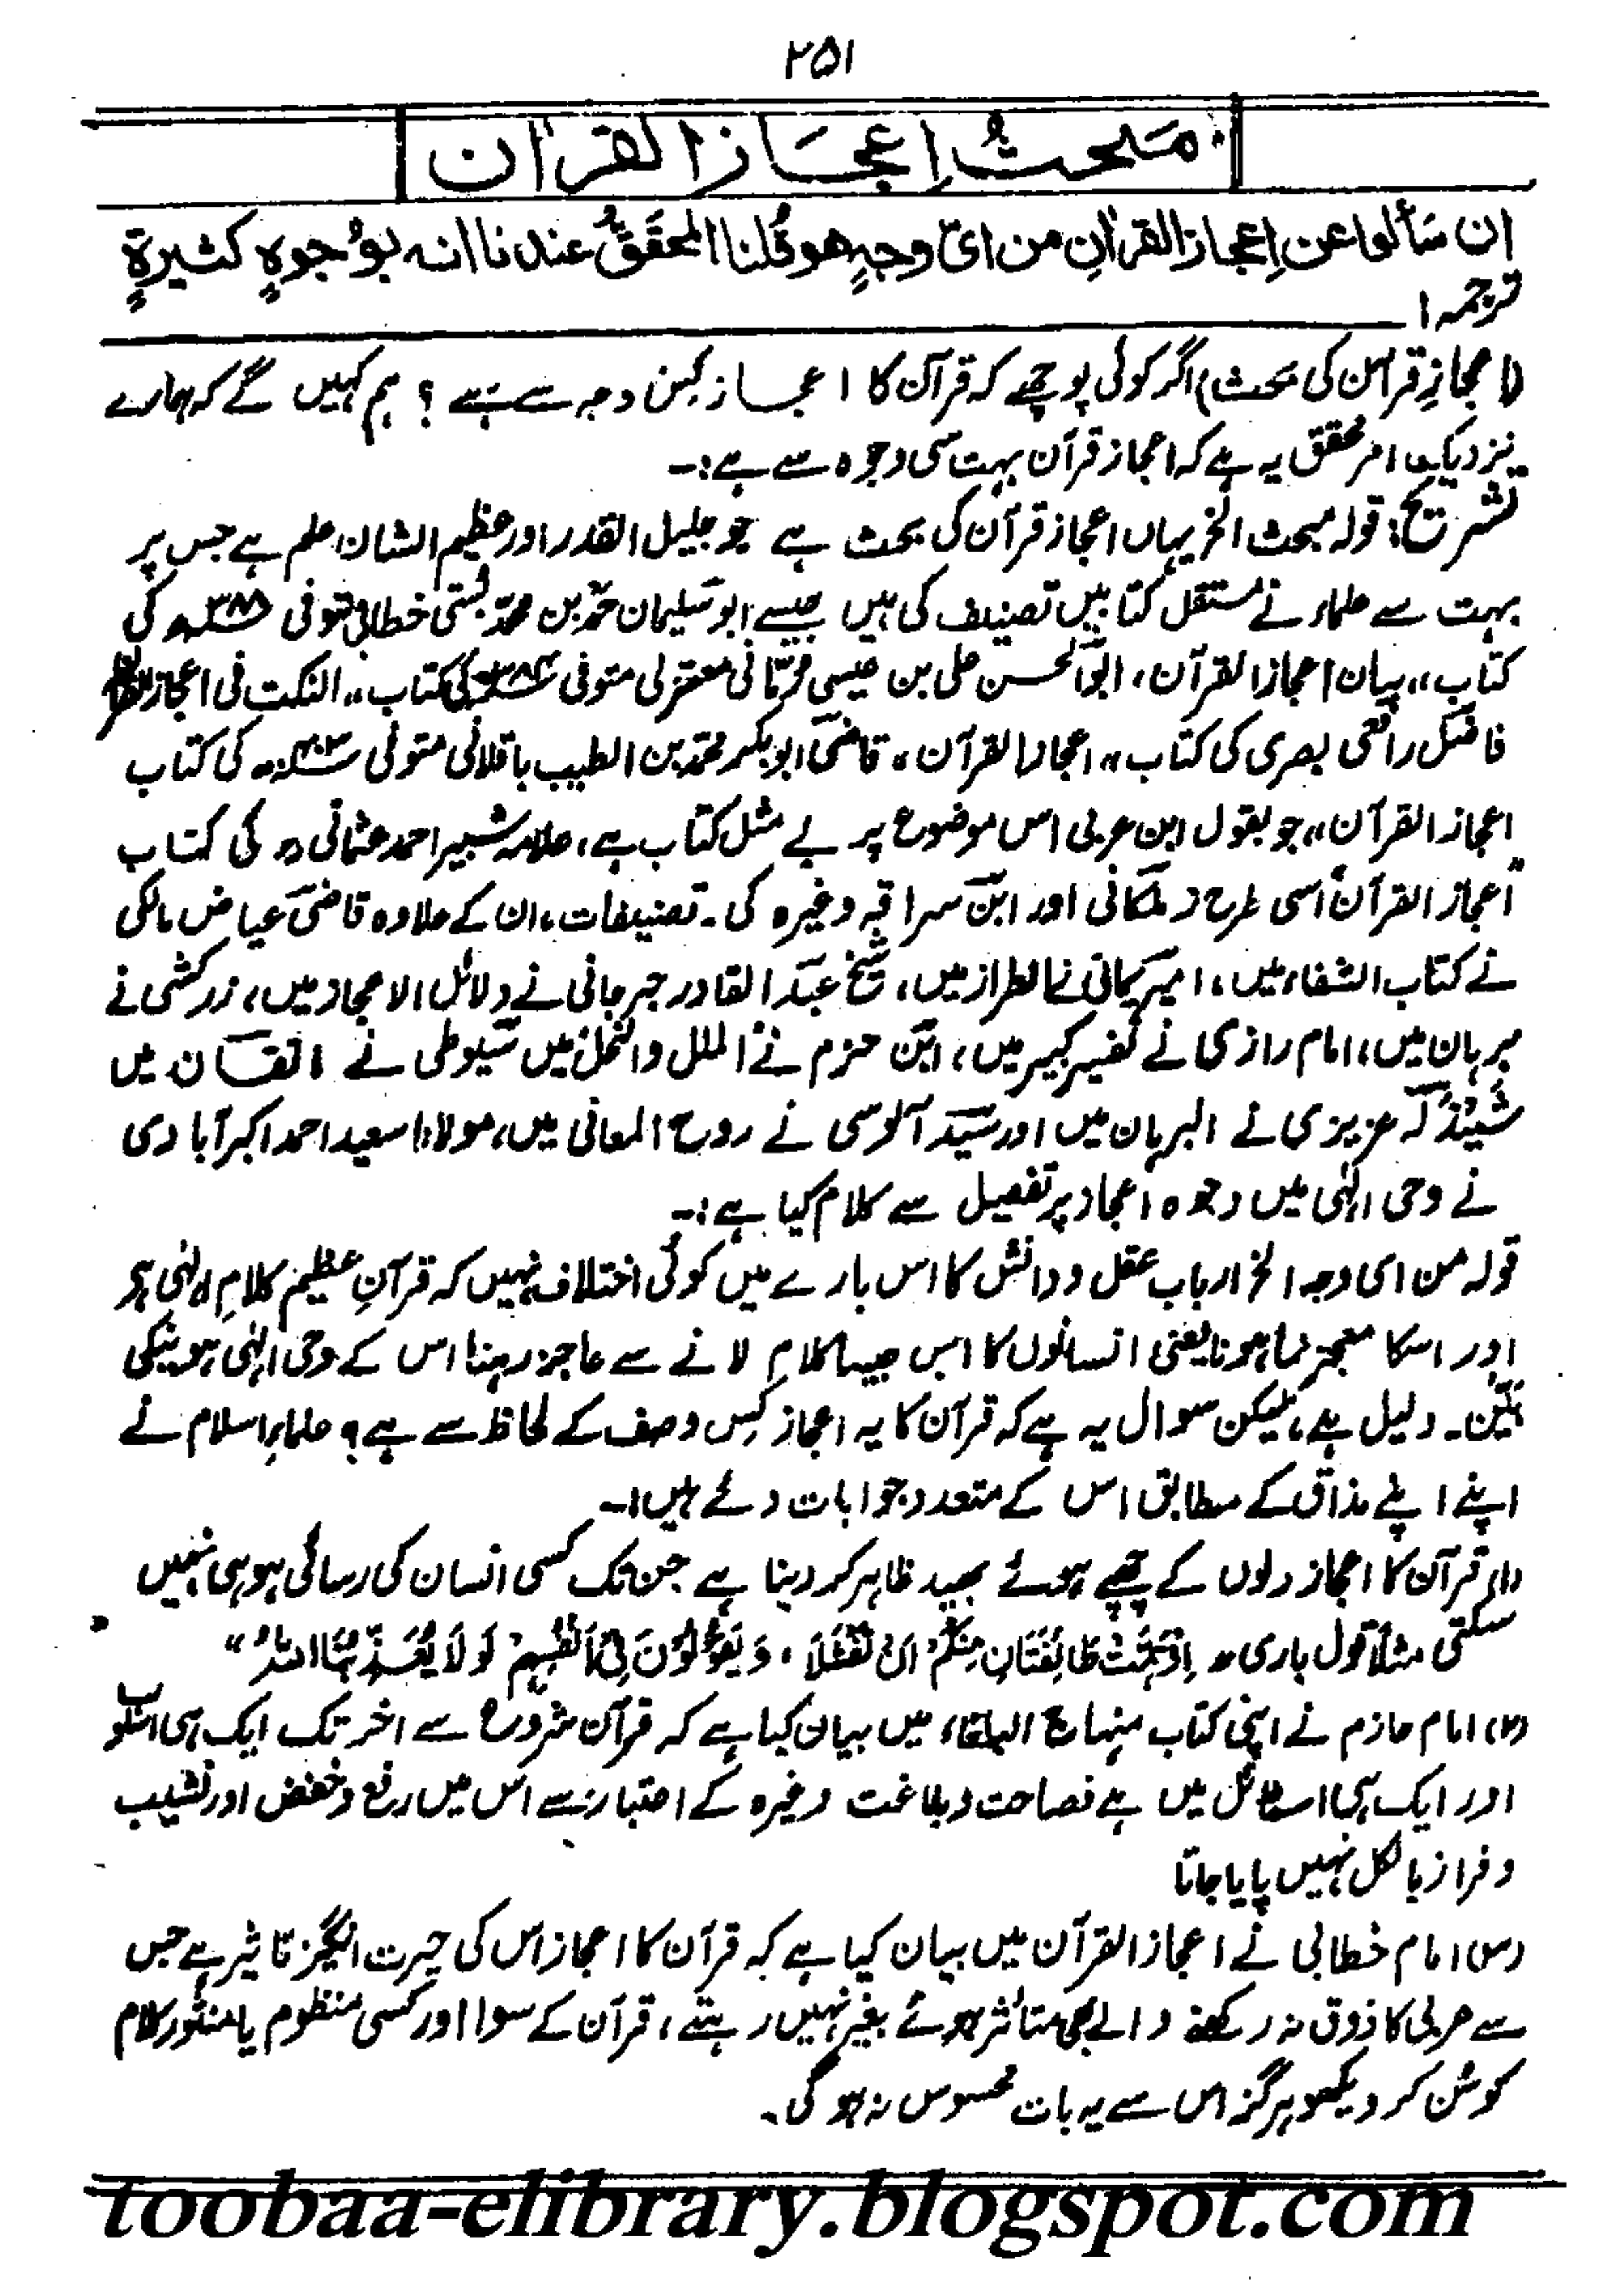 ۲۵۱
مبحثُ اِعجَاز القرآن
ان سَألوا عن اِعجاز القرآنِ من ایّ وجہٍ ھو قُلنا المحقَقُ عندنا انہ بوُجوہٍ کثیرۃٍ
ترجمہ ا
(اعجازِ قرآن کی بحث) اگر کوئی پوچھے کہ قرآن کا اعجاز کِس وجہ سے ہے ؟ ہم کہیں گے کہ ہمارے
نزدیک امر محقق یہ ہے کہ اعجاز قرآن بہت سی وجوہ سے ہے :۔
تشریح: قولہ مبحث الخ یہاں اعجاز قرآن کی بحث ہے جو جلیل القدر اور عظیم الشان علم ہے جس پر
بہت سے علماء نے مستقل کتابیں تصنیف کی ہیں جیسے ابو سلیمان حمد بن محمد بستی خطابی متوفی ۳۸۸ھ کی
کتاب ،،بیان اعجاز القرآن، ابوالحسن علی بن عیسی رمّانی معتزلی متوفی ۳۸۴ھ کی کتاب ،،النکت فی اعجاز القرآن
فاضل رافعی بصری کی کتاب ،،اعجاز القرآن،، قاضی ابوبکر محمد بن الطیب باقلانی متوفی ۴۰۳ھ کی کتاب
اعجاز القرآن،، جو بقول ابن عربی اس موضوع پر بے مثل کتاب ہے، علامہ شبیر احمد عثمانی رح کی کتاب
"اعجاز القرآن" اسی طرح زملکانی اور ابن سراقہ وغیرہ کی۔ تصنیفات، ان کے علاوہ قاضی عیاض مالکی
نے کتاب الشفاء میں، امیر یمانی نے الطراز میں، شیخ عبد القادر جرجانی نے دلائل الاعجاز میں، زرکشی نے
برہان میں، امام رازی نے تفسیر کبیر میں، ابن حزم نے الملل والنحل میں سیوطی نے اتقان میں
شیذلہ عزیزی نے البرہان میں اور سید آلوسی نے روح المعانی میں، مولانا سعید احمد اکبر آبادی
نے وحی الٰہی میں وجوہ اعجاز پر تفصیل سے کلام کیا ہے :۔
قولہ من ای وجہ الخ ارباب عقل و دانش کا اس بارے میں کوئی اختلاف نہیں کہ قرآنِ عظیم کلامِ الٰہی ہے
اور اسکا معجز نما ہونا یعنی انسانوں کا اس جیسا کلام لانے سے عاجز رہنا اس کے وحی الٰہی ہونیکی
بیّن۔ دلیل ہے، لیکن سوال یہ ہے کہ قرآن کا یہ اعجاز کِس وصف کے لحاظ سے ہے؟ علماءِ اسلام نے
اپنے اپنے مذاق کے مطابق اس کے متعدد جوابات دئے ہیں :۔
(۱) قرآن کا اعجاز دلوں کے چھپے ہوئے بھید ظاہر کر دینا ہے جن تک کسی انسان کی رسائی ہو ہی نہیں
سکتی مثلاً قول باری ،، اِذْ ہَمَّتْ طَائِفَتَانِ مِنْکُمْ اَنْ تَفْشَلَا ، وَ یَقُوْلُوْنَ فِیْ اَنْفُسِہِمْ لَوْ لَا یُعَذِّبُنَا اللہُ "
(۲) امام حازم نے اپنی کتاب منہاج البلغاء میں بیان کیا ہے کہ قرآن شروع سے اخر تک ایک ہی اسلوب
اور ایک ہی اسٹائل میں ہے فصاحت و بلاغت وغیرہ کے اعتبار سے اس میں رفع و خفض اور نشیب
و فراز بالکل نہیں پایا جاتا
(۳) امام خطابی نے اعجاز القرآن میں بیان کیا ہے کہ قرآن کا اعجاز اس کی حیرت انگیز تاثیر ہے جس
سے عربی کا ذوق نہ رکھنے والے بھی متاثر ہوئے بغیر نہیں رہتے، قرآن کے سوا اور کسی منظوم یا منثور کلام
کو سُن کر دیکھو ہرگز اس سے یہ بات محسوس نہ ہوگی۔
toobaa-elibrary.blogspot.com